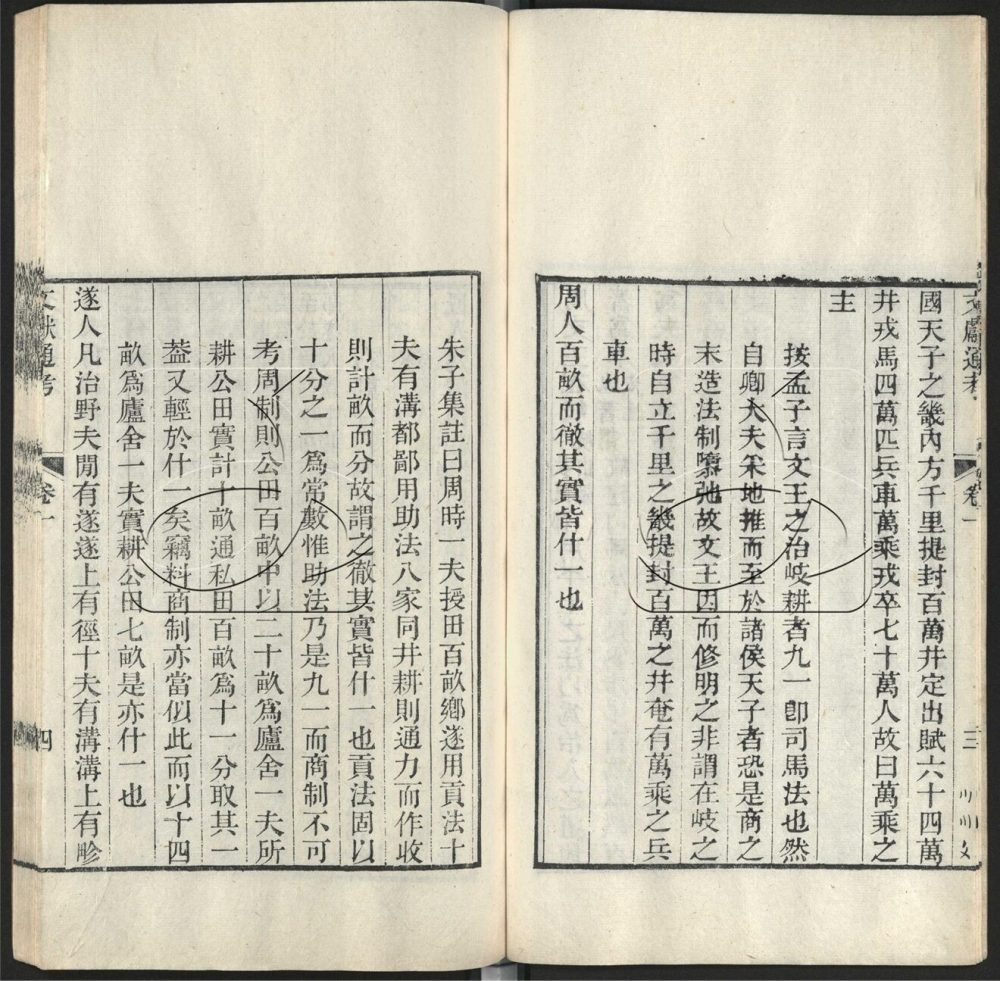 國天子之畿內方千里提封百萬井定出賦六十四萬
井戎馬四萬匹兵車萬乘戎卒七十萬人故曰萬乘之
主
按孟子言文王之治岐耕者九一卽司馬法也然
自卿大夫采地推而至於諸侯天子者恐是商之
末造法制隳弛故文王因而修明之非謂在岐之
時自立千里之畿提封百萬之井奄有萬乘之兵
車也
周人百畝而徹其實皆什一也
朱子集註曰周時一夫授田百畝鄉遂用貢法十
夫有溝都鄙用助法八家同井耕則通力而作收
則計畝而分故謂之徹其實皆什一也貢法固以
十分之一爲常數惟助法乃是九一而商制不可
考周制則公田百畝中以二十畝爲廬舍一夫所
耕公田實計十畝通私田百畝爲十一分取其一
葢又輕於什一矣竊料商制亦當似此而以十四
畝爲廬舍一夫實耕公田七畝是亦什一也
遂人凡治野夫閒有遂遂上有徑十夫有溝溝上有畛
文獻通考 卷一 四